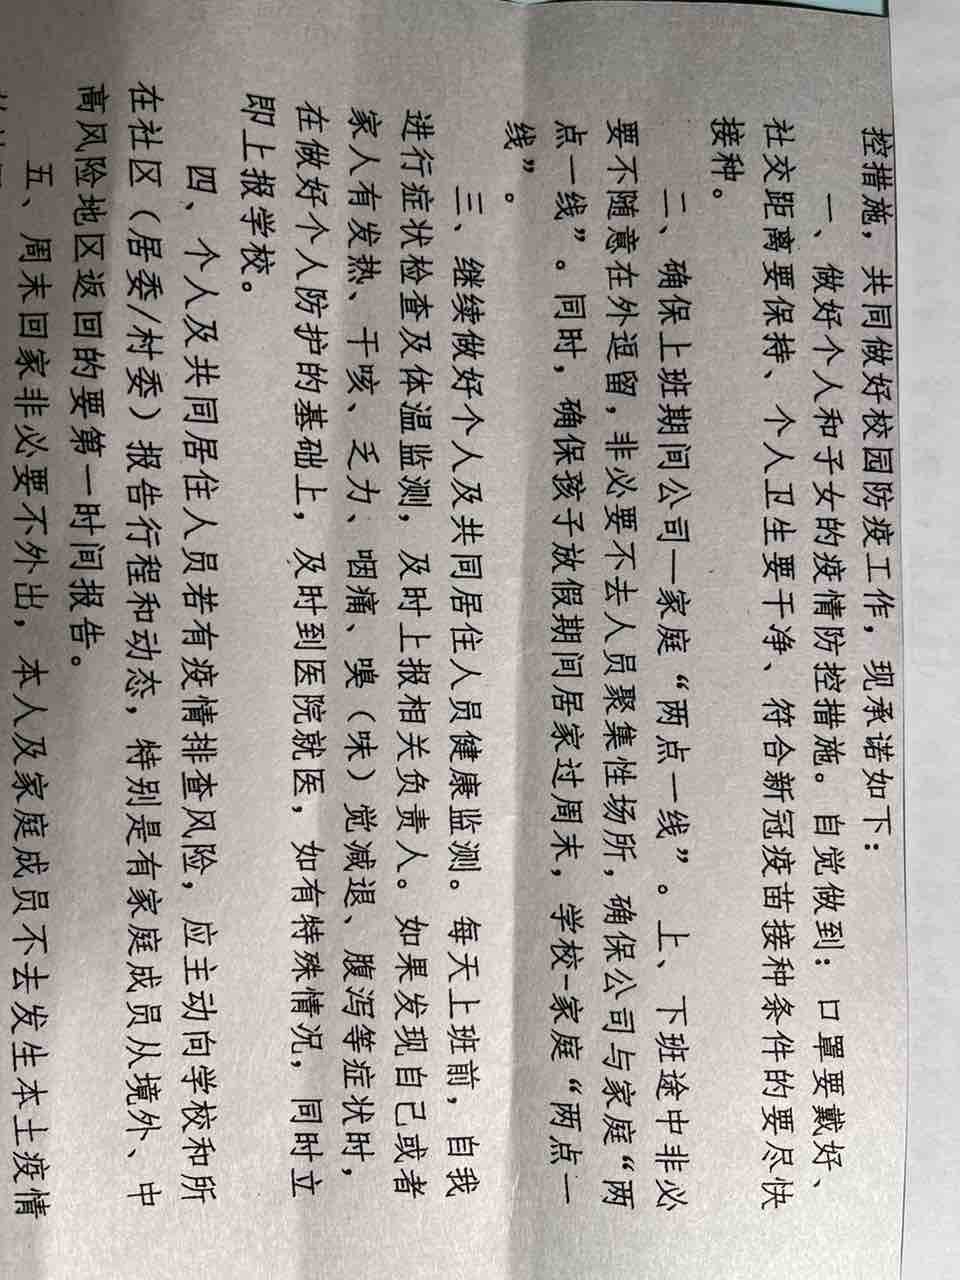 控措施，共同做好校园防疫工作，现承诺如下：
一、做好个人和子女的疫情防控措施。自觉做到：口罩要戴好、
社交距离要保持、个人卫生要干净、符合新冠疫苗接种条件的要尽快
接种。
二、确保上班期间公司一家庭“两点一线”。上、下班途中非必
要不随意在外逗留，非必要不去人员聚集性场所，确保公司与家庭“两
点一线”。同时，确保孩子放假期间居家过周末，学校-家庭“两点一
线”。
三、继续做好个人及共同居住人员健康监测。每天上班前，自我
进行症状检查及体温监测，及时上报相关负责人。如果发现自己或者
家人有发热、干咳、乏力、咽痛、嗅（味）觉减退、腹泻等症状时，
在做好个人防护的基础上，及时到医院就医，如有特殊情况，同时立
即上报学校。
四、个人及共同居住人员若有疫情排查风险，应主动向学校和所
在社区（居委/村委）报告行程和动态，特别是有家庭成员从境外、中
高风险地区返回的要第一时间报告。
五、周末回家非必要不外出，本人及家庭成员不去发生本土疫情